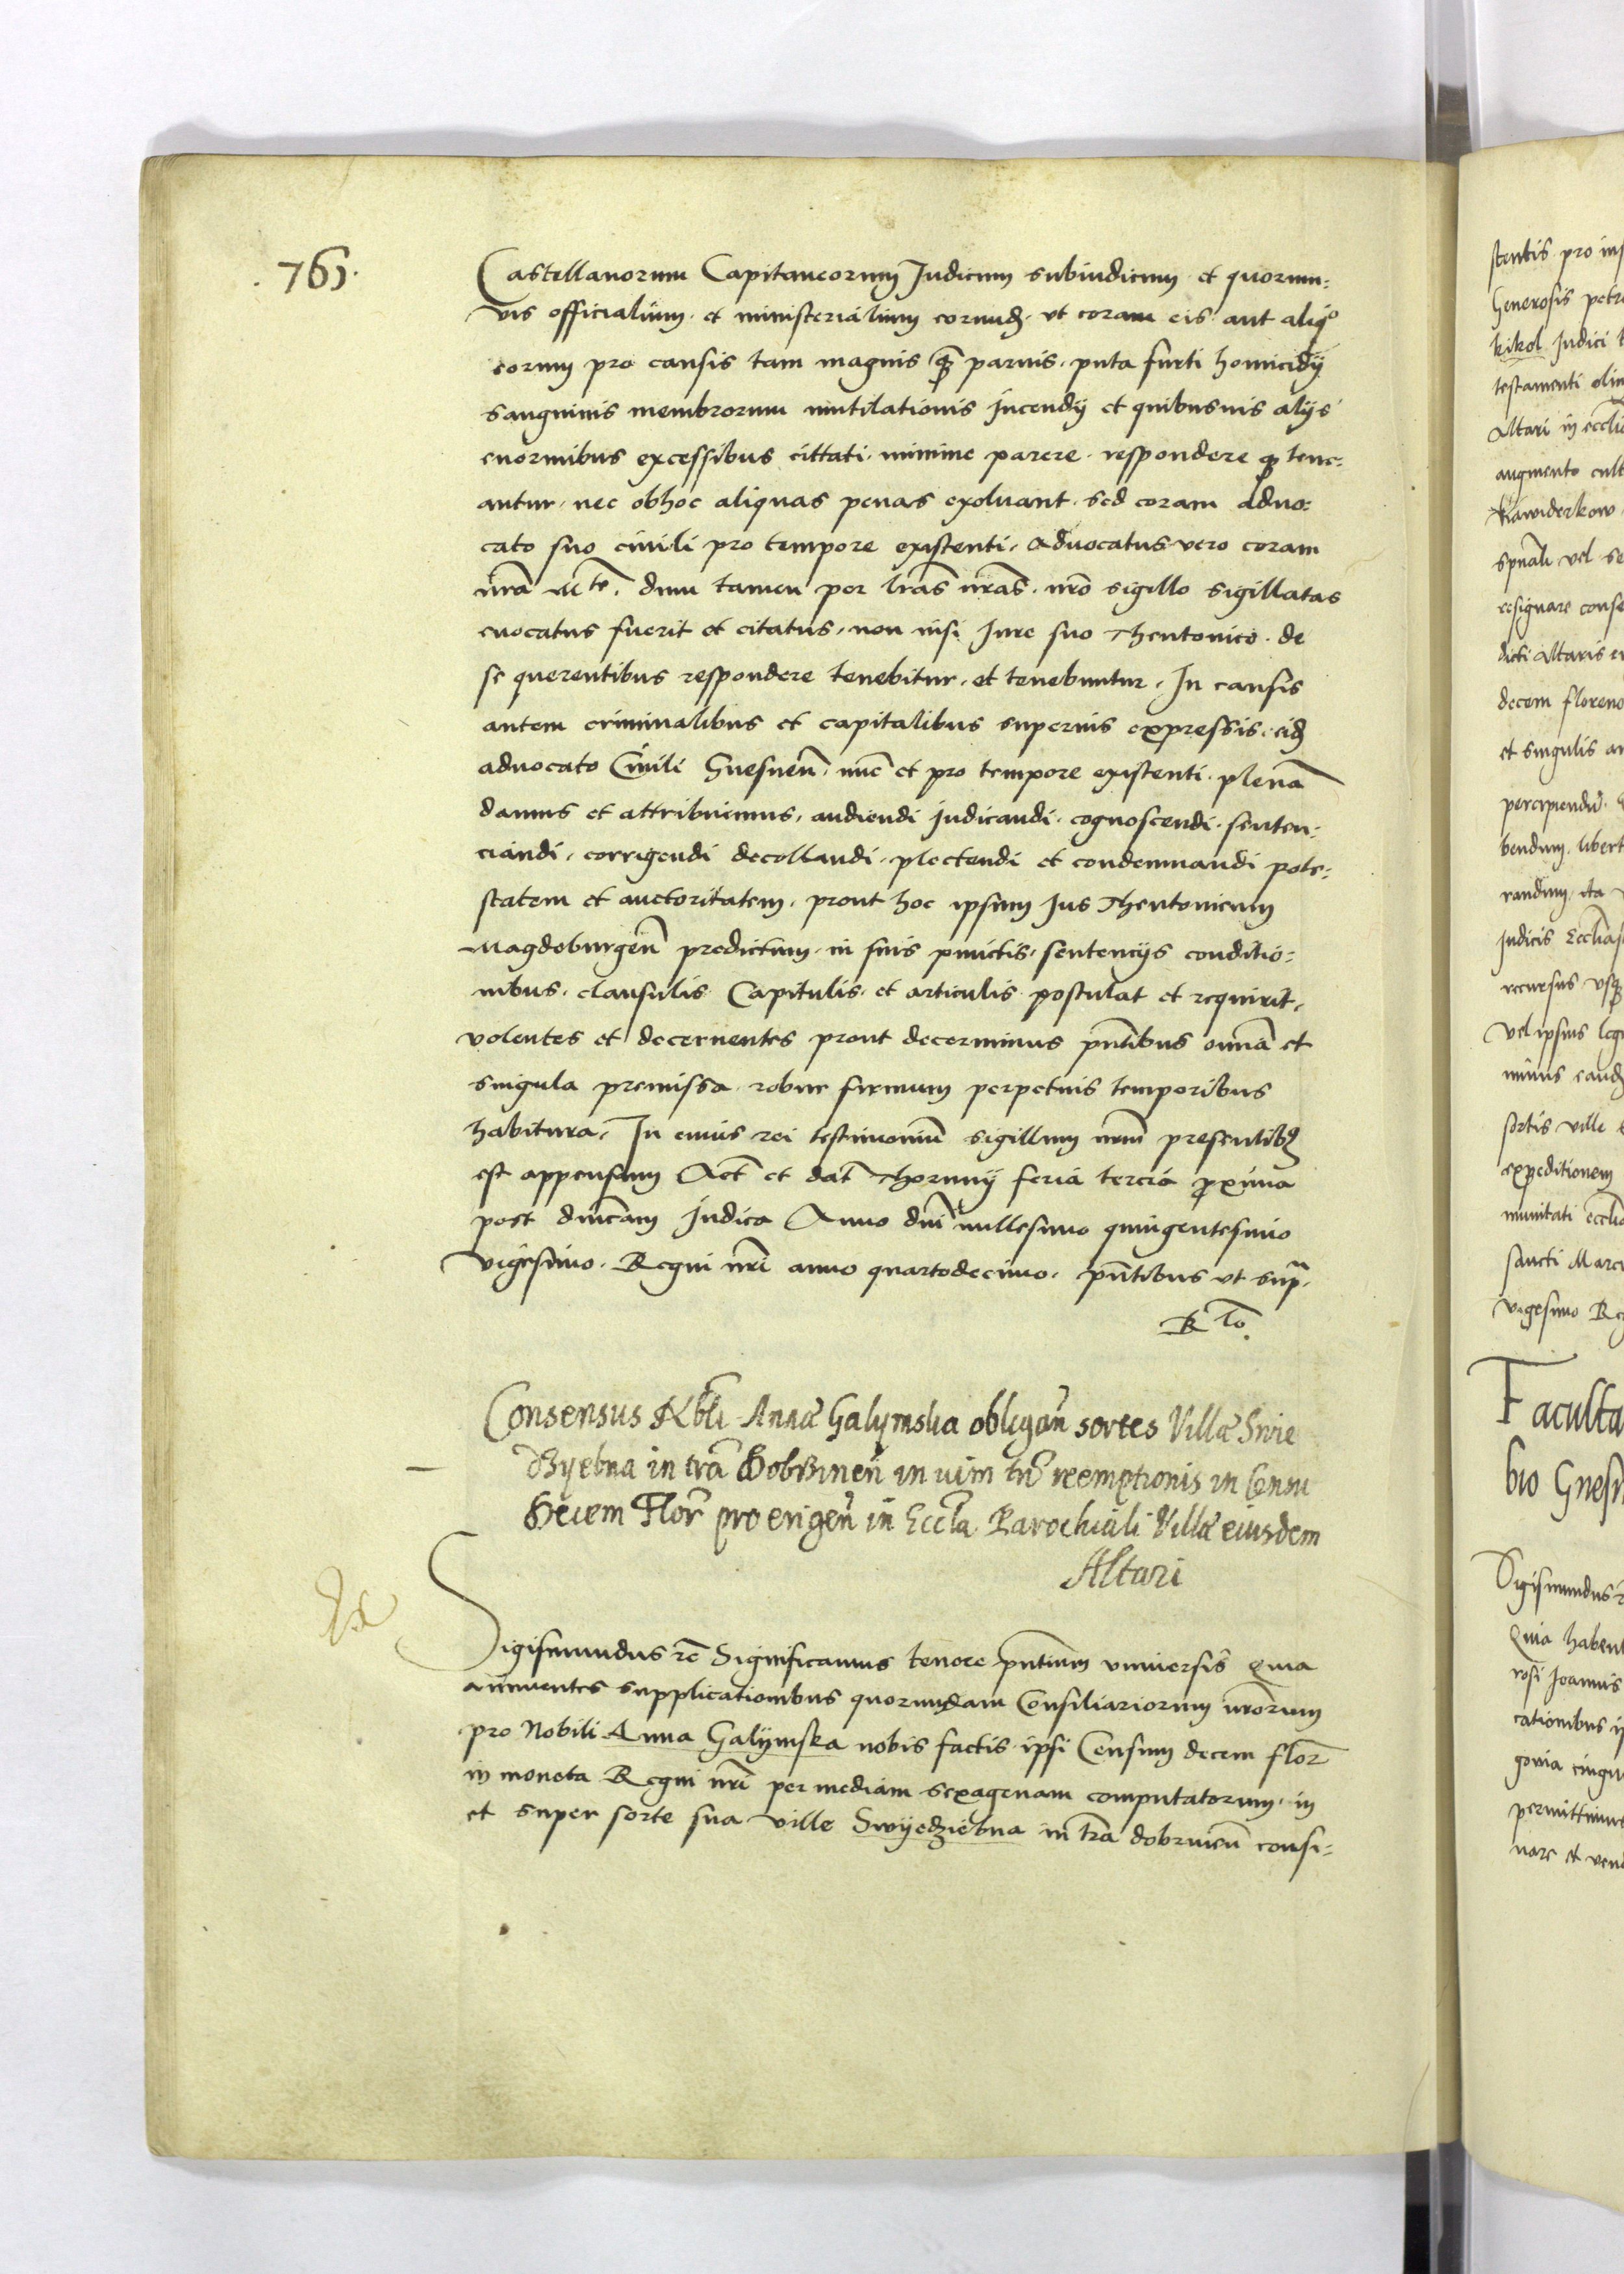 765.
Castellanorum Capitaneorum Judicum subiudicum et quorum-
vis officialium et ministerialium eorund. ut coram eis aut aliqo
eorum pro causis tam magnis q̄ paruis. puta furti homicidÿ
sanguinis membrorum mutilationis Jncendÿ et quibusuis alÿs
enormibus excessibus cittati. minime parere. respondere q tene-
antur. nec obhoc aliquas penas exoluant. sed coram Aduo-
cato suo ciuili pro tempore existenti. Aduocatus vero coram
nrā Mte. dum tamen per lrās nrās. nrō sigillo sigillatas
euocatus fuerit et citatus. non nisi Jure suo Theutonico. de
se querentibus respondere tenebitur. et tenebuntur. In causis
autem criminalibus et capitalibus superius expressis. eid
aduocato Ciuili Gnesneñ. nūc et pro tempore existenti. plenā
damus et attribuimus. audiendi judicandi. cognoscendi. senten-
ciandi. corrigendi decollandi. plectendi et condemnandi pote-
statem et auctoritatem. prout hoc ipsum Jus Theutonicum
Magdeburgeñ predictum. in suis punctis. sentencÿs conditio-
nibus. clausulis Capitulis. et articulis postulat et requirit.
volentes et decernentes prout decernimus pñtibus omnia et
singula premissa robur firmum perpetuis temporibus
habitura. In cuius rei testimoniū sigillum nrm̄ presentib
est appensum Act et dat Thorunÿ feria tercia proxima
post dnicam Judica Anno dnī millesimo quingentesimo
vigesimo. Regni nrī anno quartodecimo. pñtibus ut supra.
R to.
Consensus Nbli Annæ Galÿmska obligan sortes Villæ Swie
dzyebna in trā Dobrzineñ in uim tn reemptionis in Censu
Decem Flor pro erigen in Eccla Parochiali Villæ eiusdem
Altari
Sigismundus rē Significamus tenore pñtium vniuersis Quia
annuentes supplicationibus quorundam Consiliariorum nrorum
pro Nobili Anna Galÿmska nobis factis. ipsi Censum decem flor
in moneta Regni nrī per mediam sexagenam computatorum. in
et super sorte sua ville Swÿedziebna in trā dobrineñ consi-
stentis pro
Generosis
kikol Judici
testamenti
Altari in
augmento
vel
resignare
dicti Altaris
decem
et singulis
percipiendū
bendum.
randum. ita
Judicis
recursus
vel ipsius
sortis ville
expeditionem
munitati
sancti
vigesimo
Faculta
bio Gnesn
Sigismundus
Quia
rosi Joannis
cationibus
permittimus
nare et